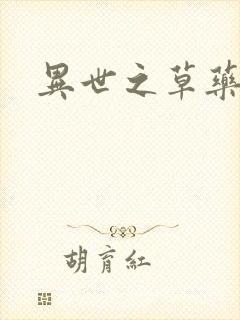 異世之草藥
胡育紅